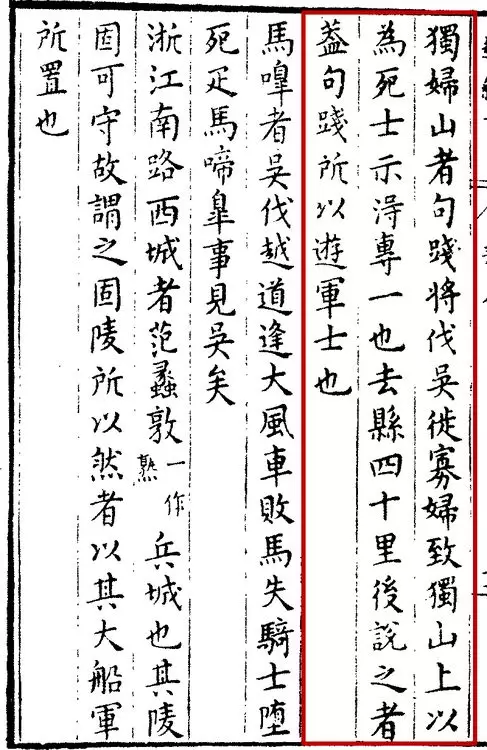 獨婦山者句踐將伐吳徙寡婦致獨山上以
為死士示淂專一也去縣四十里後說之者
葢句踐所以遊軍士也
馬嘷者吳伐越道逢大風車敗馬失騎士墮
死疋馬啼臯事見吳矣
浙江南路西城者范蠡敦一作
㷱兵城也其陵
固可守故謂之固陵所以然者以其大船軍
所置也